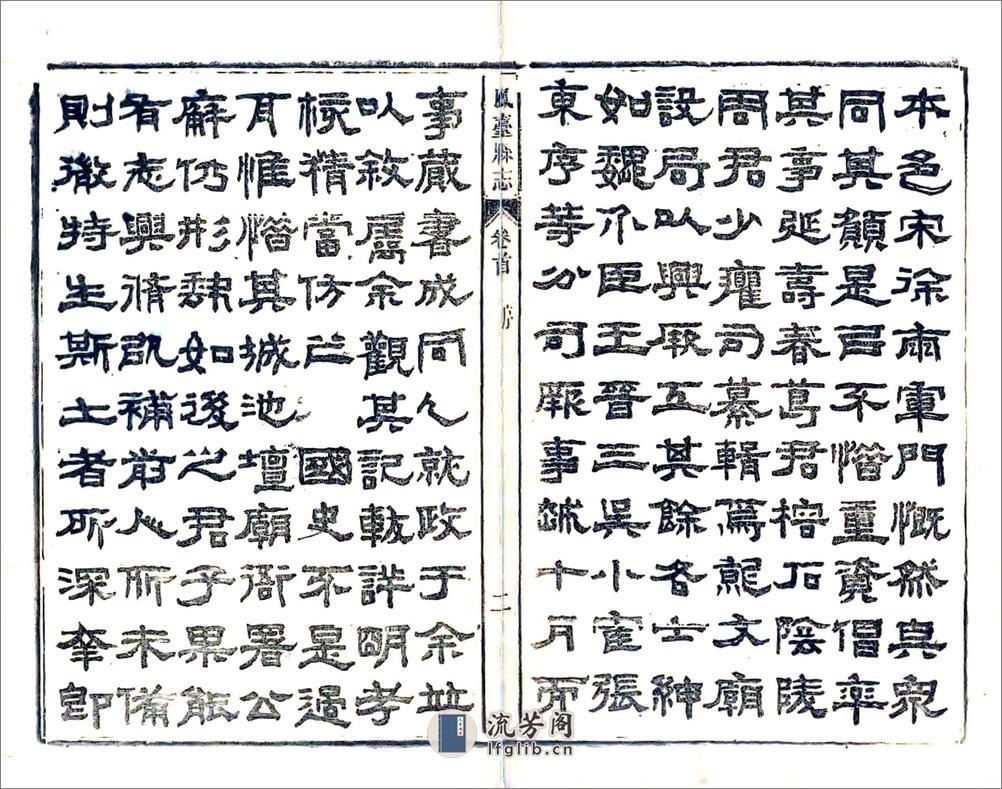 本邑宋徐雨軍門慨然與衆
同其願是已不惜重資倡率
其事延壽春葛君棓石陰陵
周君少癯司纂輯焉就文廟
設局以興厥工其餘各士紳
如魏介臣王晉三吳小隺張
東序等分司厥事越十月而
鳳臺縣志 卷首 序 二
事蕆書成同人就政于余並
以敘屬余觀其記載詳明考
核精當仿之 國史不是過
耳惟惜其城池壇廟衙署公
廨仍形缺如後之君子果能
有志興脩以補前人所未備
則徵特生斯土者所深幸即
流芳阁
lfglib.cn